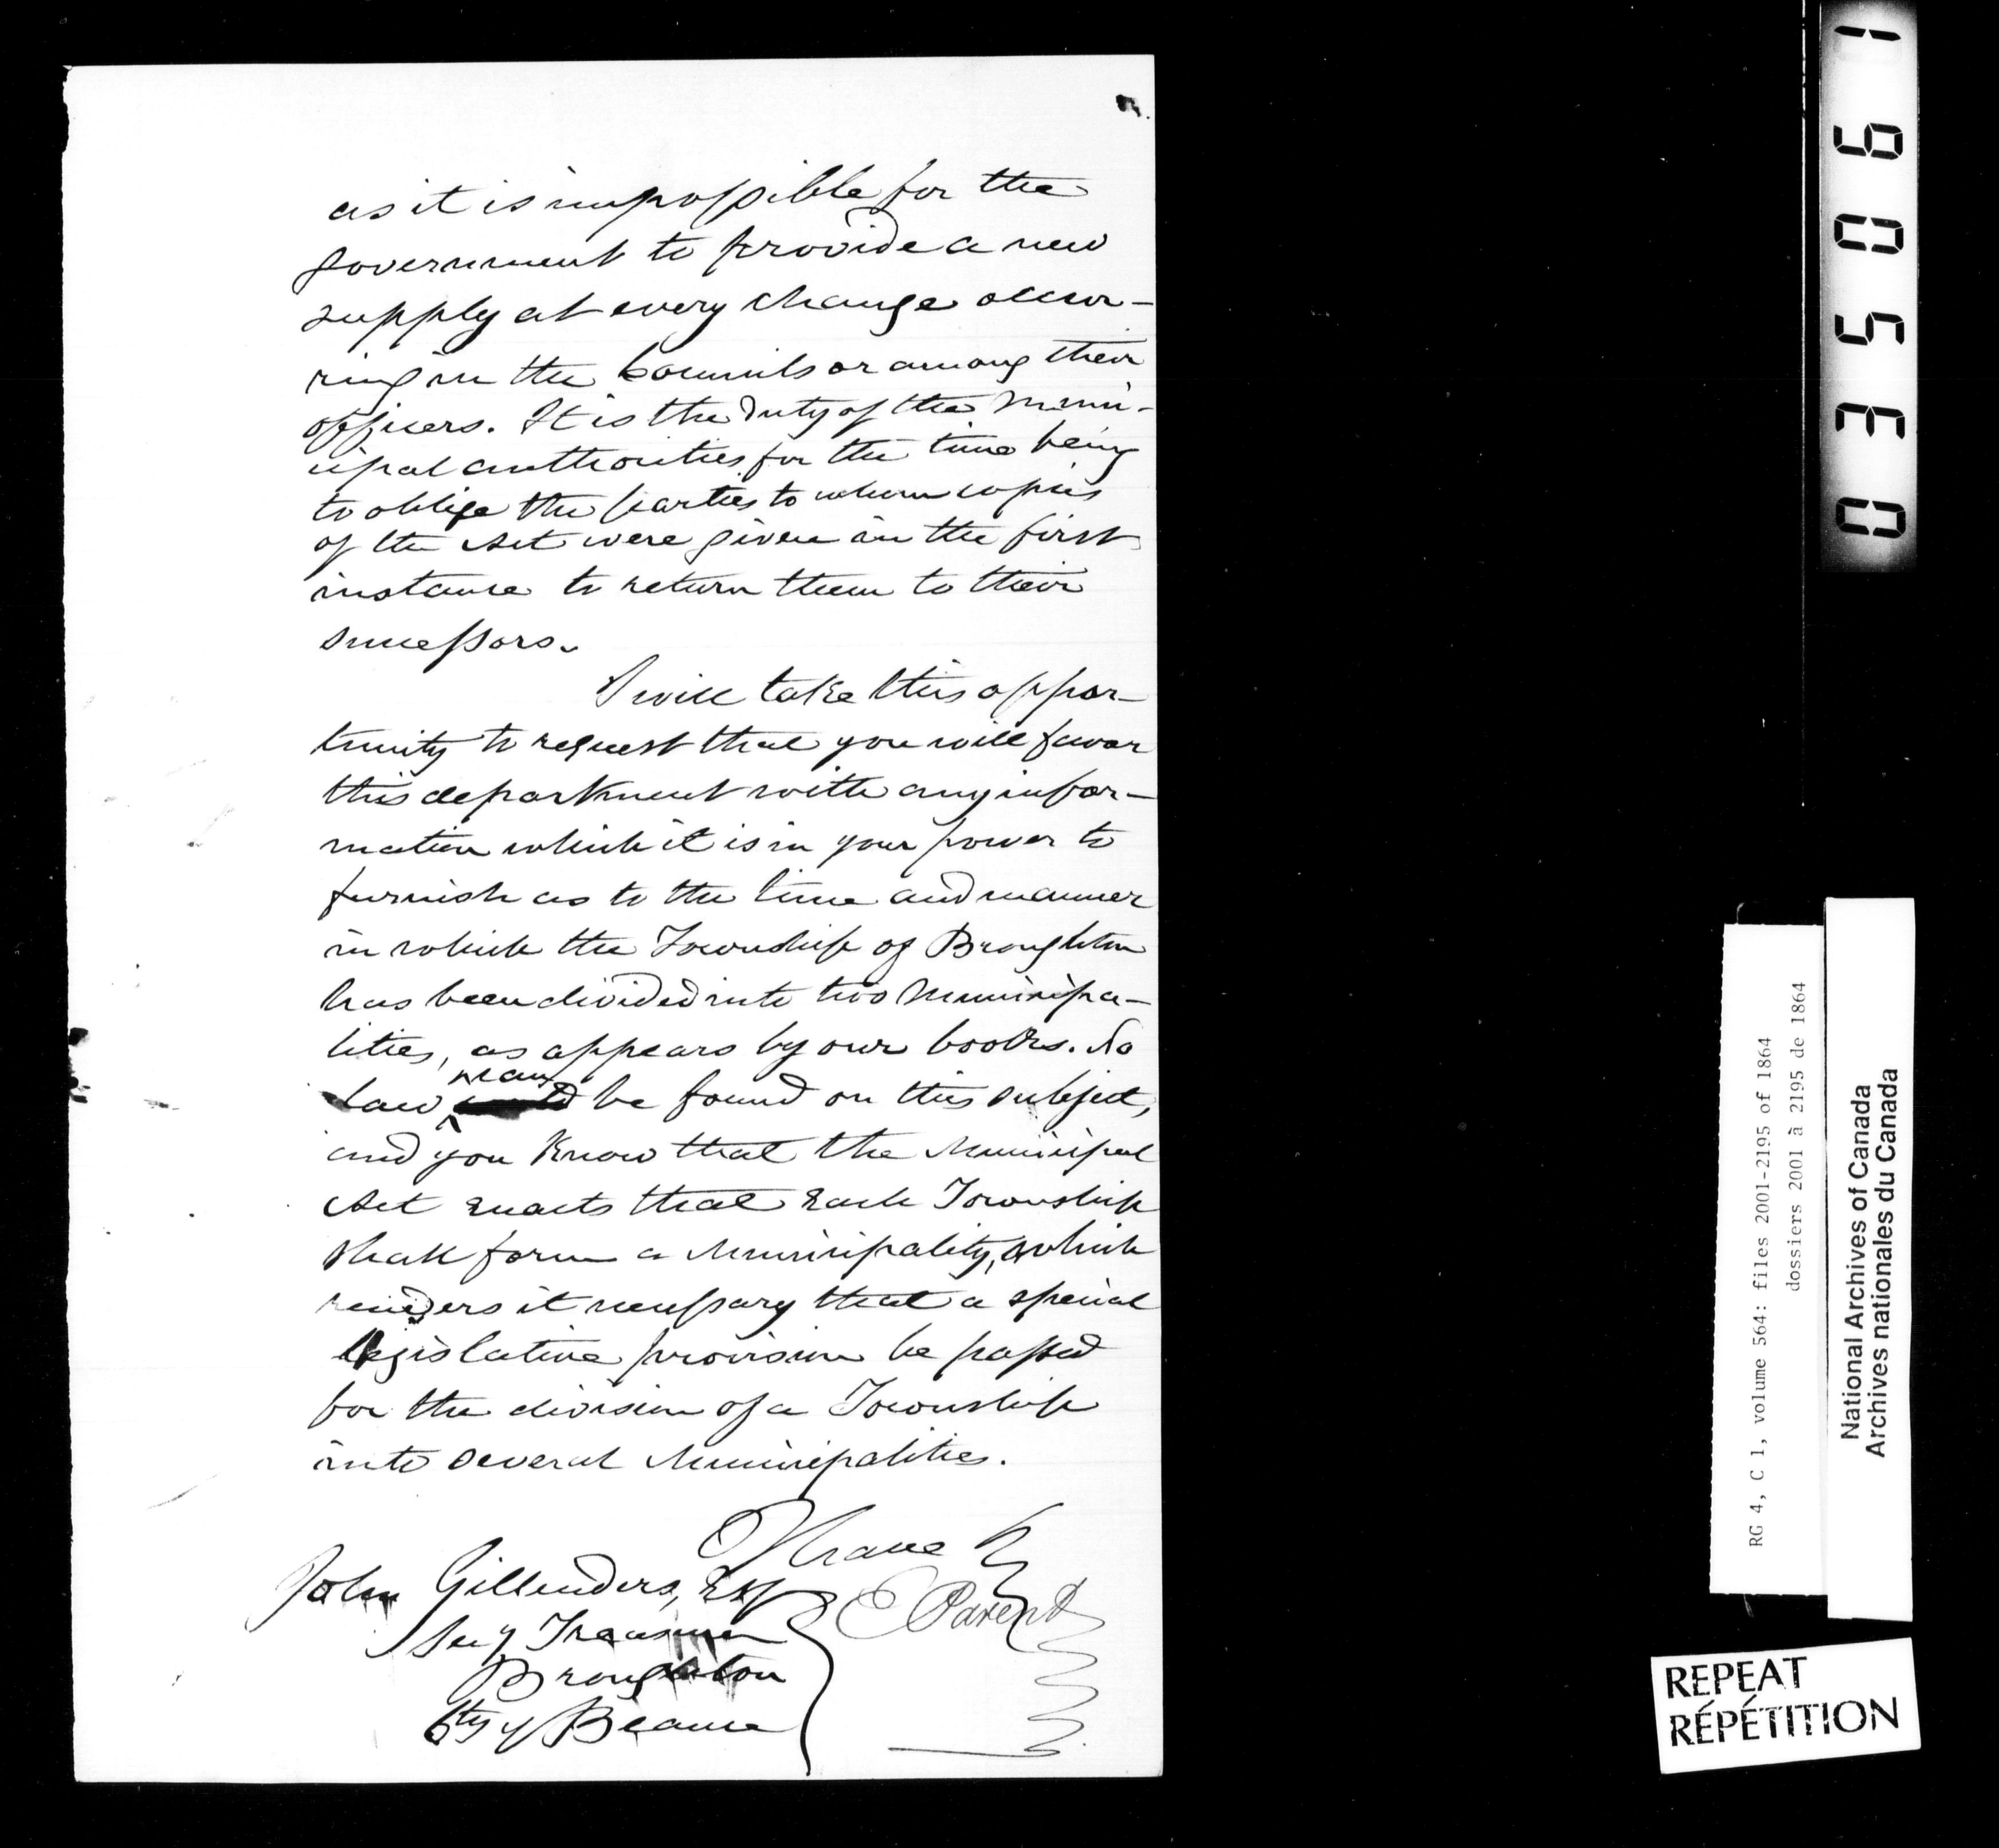 as it is impossible for the
government to provide a new
supply at every change occur-
ring in the Councils or among their
officers. It is the duty of the Muni-
cipal authorities for the time being
to oblige the parties to whom copies
of the Act were given in the first
instance to return them to their
successors.
I will take this oppor-
tunity to request that you will favor
this department with any infor-
mation which it is in your power to
furnish as to the time and manner
in which the Township of Broughton
has been divided into two Municipa-
lities, as appears by our books. No
can
law be found on this subject,
and you know that the Municipal
Act enacts that each Township
shall form a Municipality, which
renders it necessary that a special
legislative provision be passed
for the division of a Township
into several Municipalities.
I have &c
John Gillenders, Esq
E Parent
Secy Treasurer
Broughton
Cty of Beauce
035061
RG 4, C 1, volume 564: files 2001-2195 of 1864
dossiers 2001 à 2195 de 1864
National Archives of Canada
Archives nationales du Canada
REPEAT
RÉPÉTITION